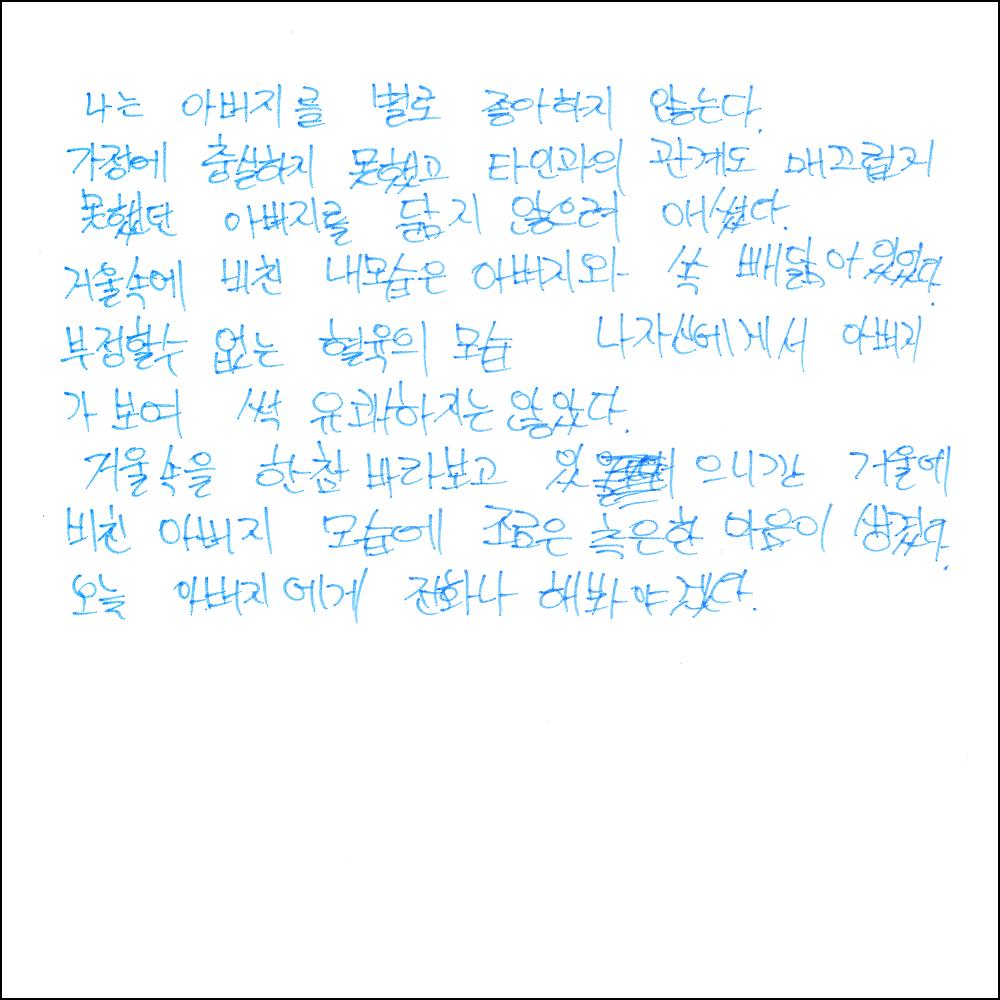 나는 아버지를 별로 좋아하지 않는다.
가정에 충실하지 못했고 타인과의 관계도 매끄럽지
못했던 아빠지를 닮지 않으려 애썼다.
거울속에 비친 내모습은 아버지와 쏙 빼닮아있었다.
부정할수 없는 혈육의 모습 나자신에게서 아버지
가 보여 썩 유쾌하지는 않았다.
거울속을 한참 바라보고 있 으니깐 거울에
비친 아버지 모습에 조금은 측은한 마음이 생겼다.
오늘 아버지에게 전화나 해봐야겠다.